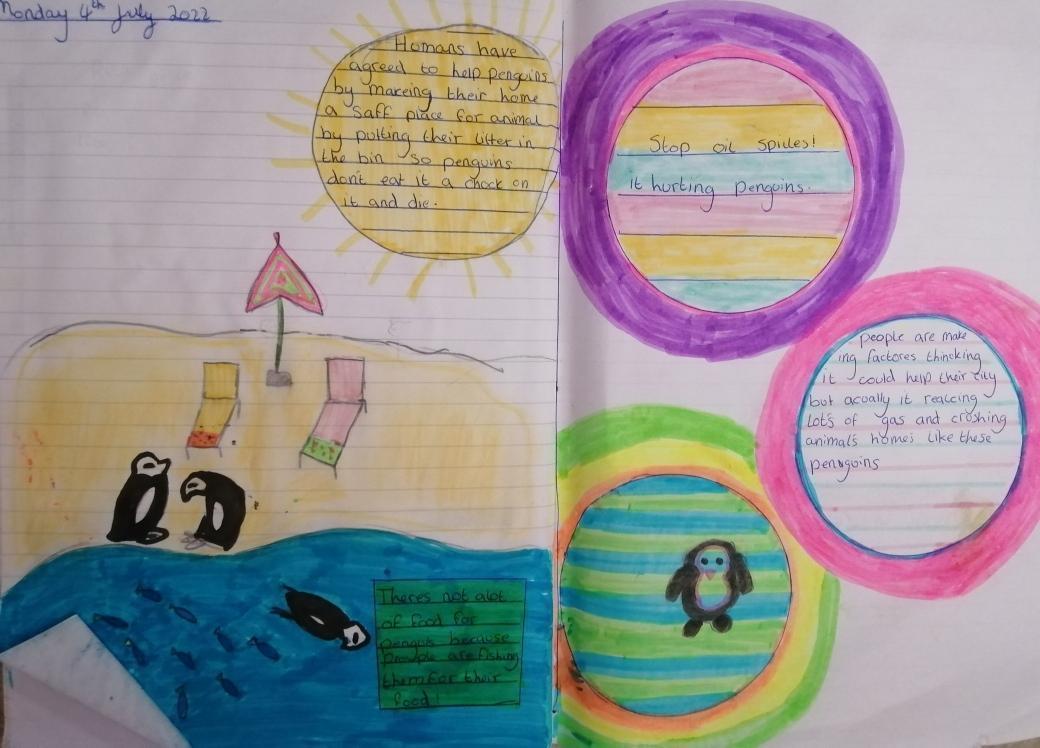 Monday 4th July 2022
Homans have
agreed to help penguins
by makeing their home
a saff place for animal
by putting their litter in
the bin so penguins
don't eat it a chock on
it and die.
Theres not alot
of food for
penguts because
people are fishing
them for their
food!
Stop oil spiles!
it hurting penguins.
people are make
ing factores thincking
it could help their city
but acually it realceing
lots of gas and croshing
animals homes like these
penguins